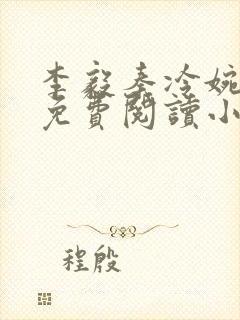 李毅秦冷婉
免費閱讀小
程殷